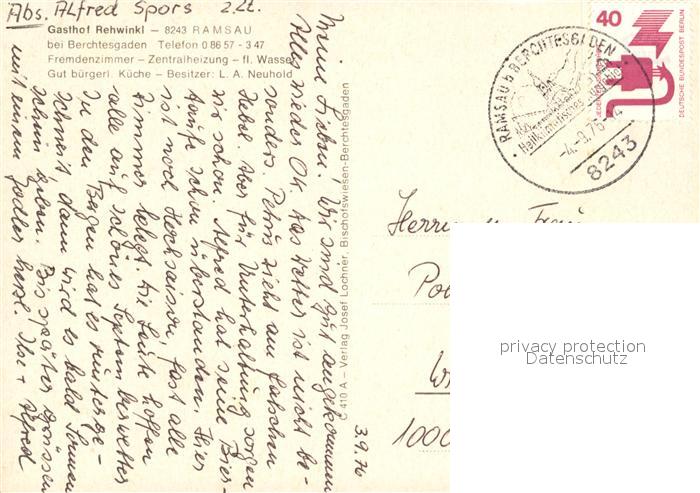 Abs. Alfred Spors z.Zt.
Gasthof Rehwinkl – 8243 RAMSAU
bei Berchtesgaden Telefon 0 86 57 - 3 47
Fremdenzimmer – Zentralheizung – fl. Wasser
Gut bürgerl. Küche – Besitzer: L. A. Neuhold
Meine Lieben! Wir sind gut angekommen
Alles wieder OK. Das Wetter ist nicht be-
sonders. Petrus zieht am
Hebel. Aber für Unterhaltung sorgen
wir schon. Alfred hat seine Bier-
taufe schon überstanden. Hier
ist noch Hochsaison, fast alle
Zimmer belegt. Die Leute hoffen
alle auf schönes Septemberwetter
In den Bergen hat es runterge-
schneit dann wird es bald Sonnen-
schein geben. Bis später grüssen
mit einem Jodler herzl. Ilse + Alfred
C 410 A – Verlag Josef Lochner, Bischofswiesen-Berchtesgaden
3.9.76
40
DEUTSCHE BUNDESPOST BERLIN
RAMSAU b BERCHTESGADEN
Heilklimatischer
-4.-9.76-
8243
Herrn u. Frau
1000
privacy protection
Datenschutz